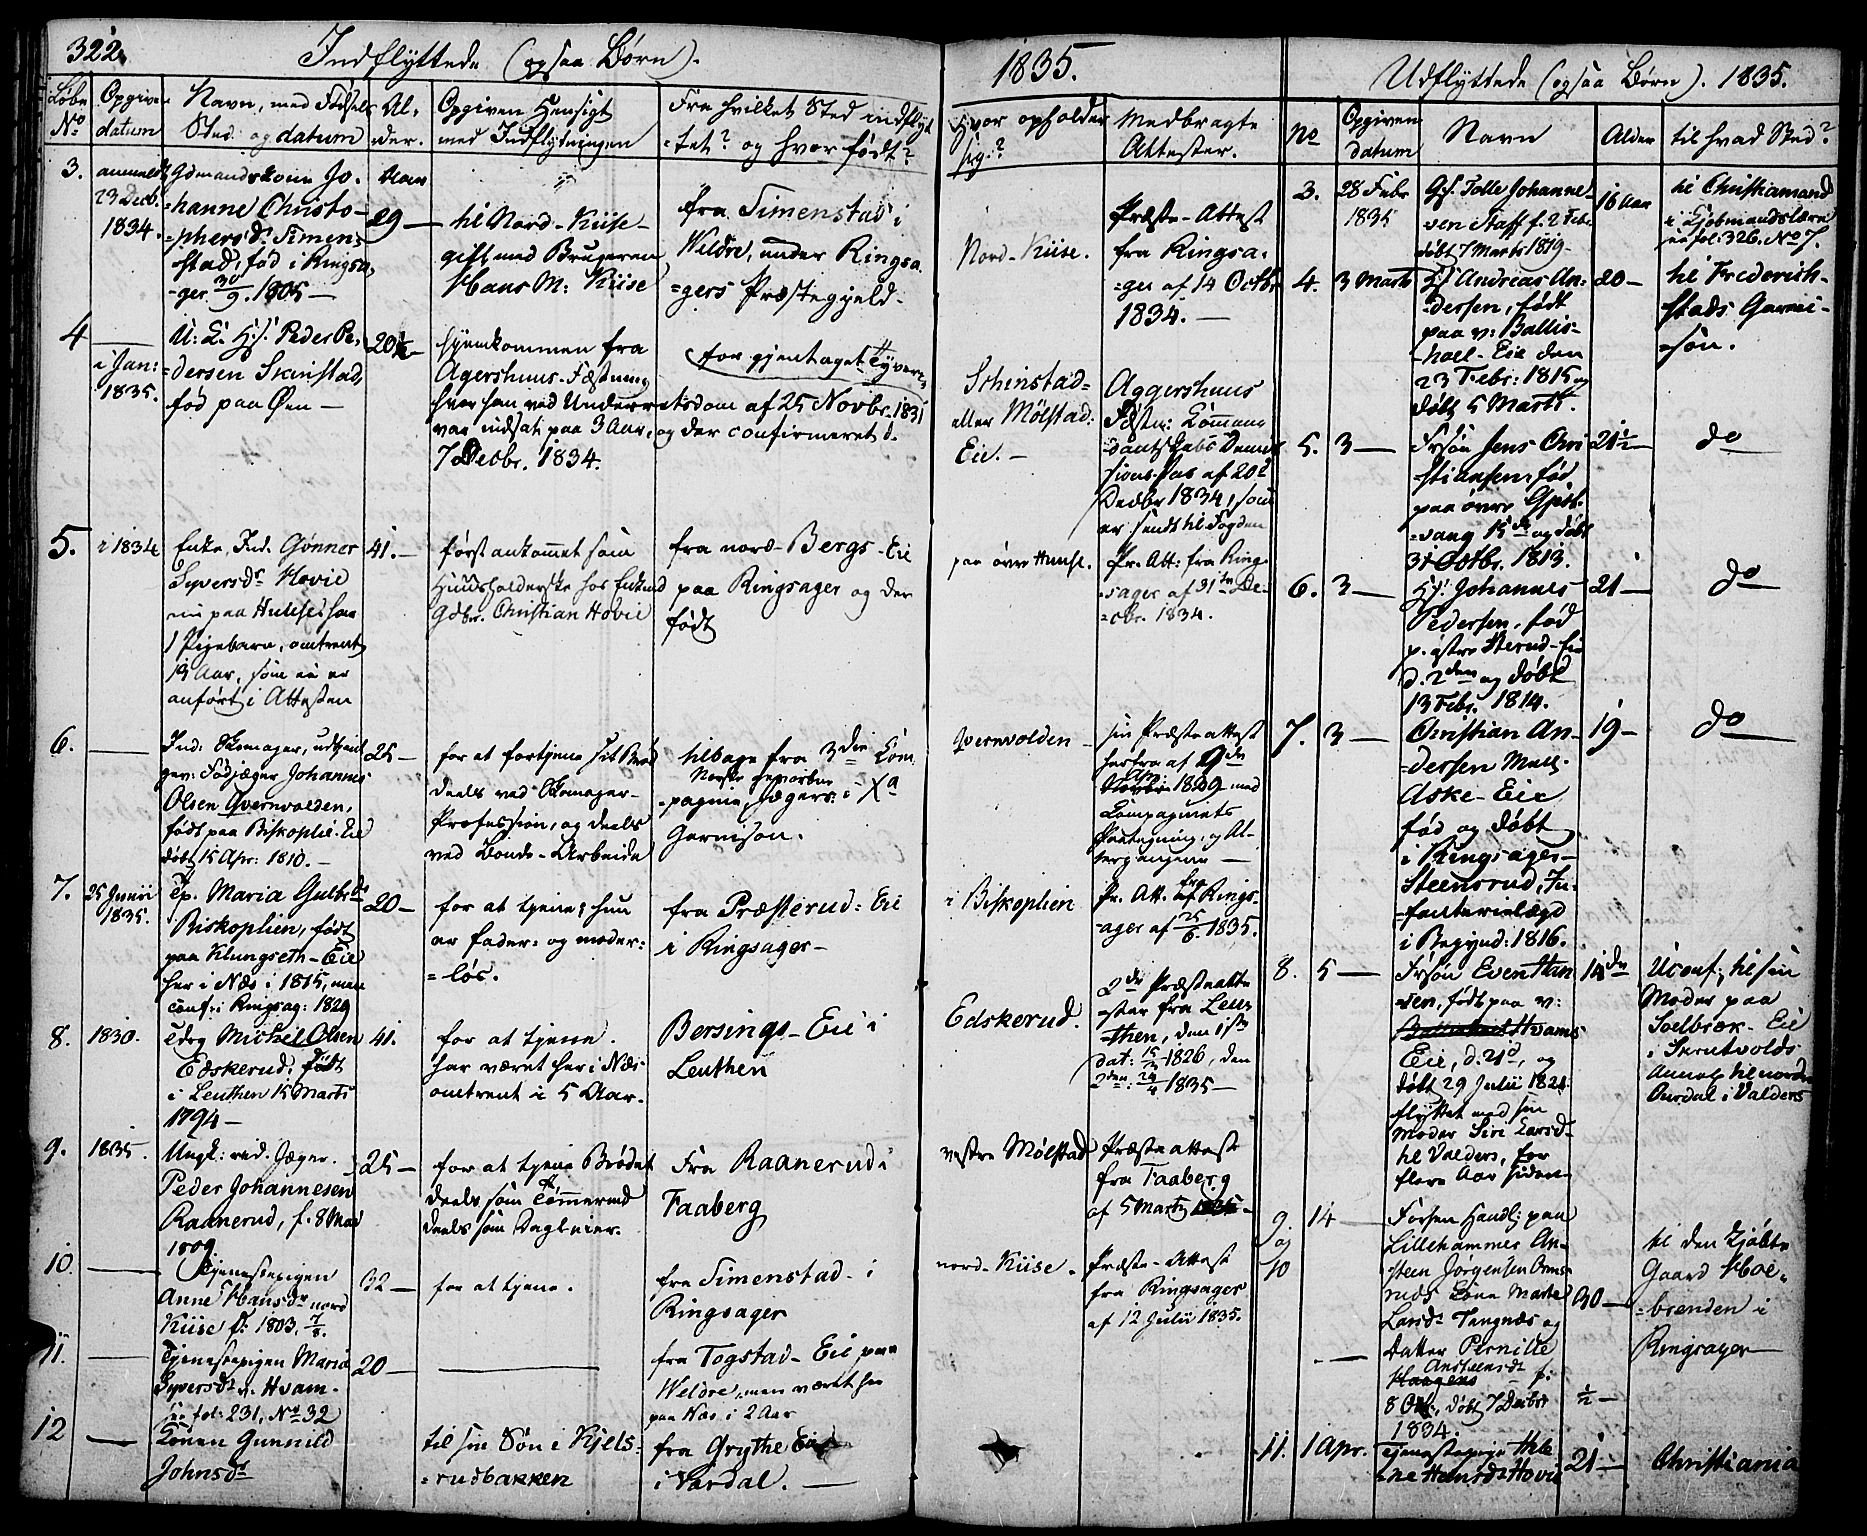 322.
Indflyttede (ogsaa Børn).
1835.
Udflyttede (ogsaa Børn). 1835.
Løbe No
Opgiven datum
Navn, med Fødsels Sted og datum
Alder.
Opgiven Hensigt med Indflytningen
Fra hvilket Sted indflyttet? og hvor født?
Hvor opholder sig?
Medbragte Attester.
3.
anmeldt
23 Decb.
1834.
Gdmandskone Jo-
hanne Christo-
phersdr. Simen-
stad, fød i Ringsa-
ger 30/9. 1805 —
Aar
29 —
til Nord-Kiise
gift med Brugeren
Hans M: Kiise
fra Simenstad i
Weldre, under Ringsa-
gers Præstegjeld.
Nord-Kiise.
Præste-Attest
fra Ringsa-
ger af 14 Octbr
1834. —
4
i Jan:
1835.
U: K. Gf. Peder Pe-
dersen Skinstad,
fød paa Øen —
20½
hjemkommen fra
Agershuus-Fæstning
hvor han ved Underretsdom af 25 Novbr. 1831
var indsat paa 3 Aar, og der confirmeret d.
7 Decbr. 1834.
for gjentaget Tyverie
Schinstad-
eller Mølstad-
Eie. —
Aggershuus
Fæstn: Comman-
dantskabs Demis-
sions Pas af 20de
Decbr 1834, som
er sendt til Fogden
5.
i 1834
Enke, Ind. Gønner
Syversdr. Hovie
nu paa Huuse, har
1 Pigebarn, omtrent
Aar, som ei er
anført i Attesten
41. —
først ankommet som
Huusholderske hos Enkemd
Gdbr. Christian Hovie
fra nord-Bergs-Eie
paa Ringsager og der
født
paa øvre
Pr. Att: fra Ring-
sager af 31te De-
cbr. 1834.
6. —
Ind: Skomager, udtjent
gev: Fodjæger Johannes
Olsen Qvernvolden,
født paa Biskoplie-Eie
døbt 15 Apr: 1810. —
25 —
for at fortjene sit Brød
deels ved Skomager-
Profession, og deels
ved Bonde-Arbeide
tilbage fra 3die Com-
Norske geworbne
pagnie Jægers i Xa
Garnison.
Qvernvolden
sin Præsteattest
herfra af 9de
1829 med
Compagniets
Paategning, og Al-
tergangene —
7.
25 Junii
1835.
Tp. Maria Gulbrdr
Biskoplien, født
paa Klungseth-Eie
her i Næs i 1815, men
conf: i Ringsag: 1829
20 —
for at tjene; hun
er fader- og moder-
løs.
fra Præsterud-Eie
i Ringsager —
i Biskoplien
Pr. Att. fra Rings-
ager af 25/6. 1835.
8.
1830.
Michel Olsen
Edskerud, født
i Leuthen 15 Marts
1794 —
41.
for at tjene.
har været her i Næs
omtrent i 5 Aar.
Bersings-Eie i
Leuthen
Edskerud.
2de Præsteatte-
ster fra Leu-
then, den 1ste
dat: 1826, den
2den: 24/4 1835 —
9.
1835.
Ungk: rid. Jæger.
Peder Johannesen
Raanerud, f. 8 Mai
1809.
25 —
for at tjene Brødet
deels som Tømmermd
deels som Dagleier.
Fra Raanerud i
Faaberg
vestre Mølstad
Præsteattest
fra Faaberg
af 5 Marts 1835 —
10. —
Tjenestepigen
Anne Hansdr nord
Kiise f. 1803. 7/8.
32 —
for at tjene.
fra Simenstad i
Ringsager
nord-Kiise.
Præste-Attest
fra Ringsager
af 12 Julii 1835.
11. —
Tjenestepigen Maria
Syversdr v. Hvam.
see fol: 231, No 32
20 —
fra Togstad-Eie paa
Weldre, men været her
paa Næs i 2 Aar
12 —
Konen Gunnild
Johnsdr
til sin Søn i Kjels-
rudbakken
fra Grythe Eie
i Vardal. —
No
Opgiven datum
Navn
Alder
til hvad Sted?
3.
28 Febr
1835
Gf. Tolle Johanne-
sen Staff f. 2 Febr.
døbt 7 Marts 1819 —
16 Aar
til Christiansand
i Kjøbmandslære
see fol: 326. No 7.
4.
3 Marts
Gf. Andreas An-
dersen, født
paa v: Ballis-
hoel-Eie den
23 Febr: 1815 og
døbt 5 Marts.
20 —
til Frederich-
stads Garni-
son.
5.
3 —
Frsøn Jens Chri-
stiansen, fød
paa øvre
vang 15de og døbt
31 Octbr. 1813.
21½ —
do
6.
3 —
Gf. Johannes
Pedersen, fød
p. østre Sterud-Eie
d. 2den og døbt
13 Febr. 1814.
21 —
do
7.
3 —
Christian An-
dersen
Aske-Eie
fød og døbt
i Ringsager-
Steensrud, In-
fanterielægd
i Begynd: 1816.
19 —
do
8.
5 —
Frsøn Even Han-
sen, født paa v:
Hvams
Eie, d. 21d, og
døbt 29 Julii 1821
flyttet med sin
Moder Siri Larsdr.
til Valders, for
flere Aar siden
14de
Uconf: til sin
Moder paa
Soelbræk-Eie
i Skrutvolds
Annex til nordre
Aurdal i Valders
9.
og
10
14
Forhen Handl: paa
Lillehammer An-
steen Jørgensen Orms-
ruds Kone Marte
Larsdr. Tangnæs og
Datter Pernille
Anstensdr
Haagens f:
8 Oct., døbt 7 Decbr
1834.
30 —
½ —
til den Kjøbte
Gaard Moe-
brenden i
Ringsager
11.
1 Apr.
Tjenestepige Hele-
ne Hansdr Hovie
21 —
Christiania